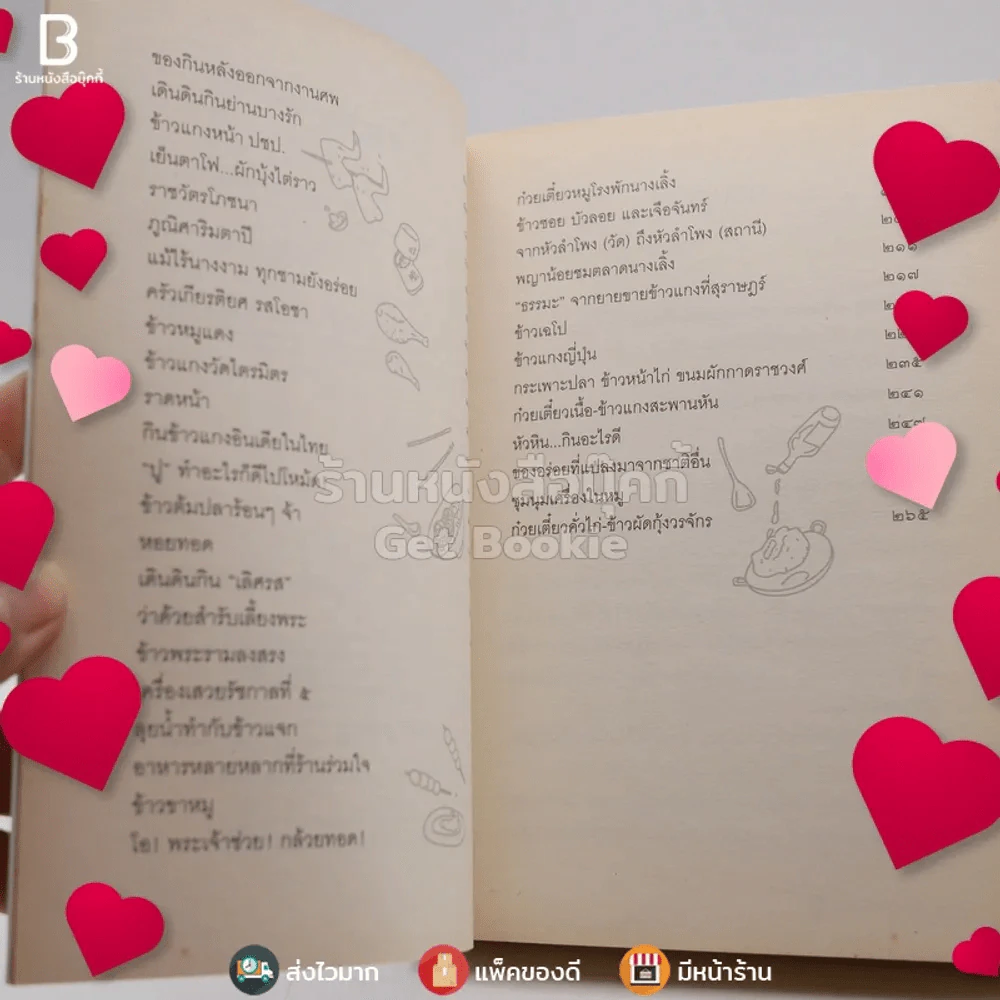 B
ร้านหนังสือบุ๊กกี้
ของกินหลังออกจากงานศพ
เดินดินกินย่านบางรัก
ข้าวแกงหน้า ปชป.
เย็นตาโฟ...ผักบุ้งไต่ราว
ราชวัตรโภชนา
ภูณิศาริมตาปี
แม้ไร้นางงาม ทุกชามยังอร่อย
ครัวเกียรติยศ รสโอชา
ข้าวหมูแดง
ข้าวแกงวัดไตรมิตร
ราดหน้า
กินข้าวแกงอินเดียในไทย
"ปู" ทำอะไรก็ดีไปโหม้ด
ข้าวต้มปลาร้อนๆ จ้า
หอยทอด
เดินดินกิน "เลิศรส"
ว่าด้วยสำรับเลี้ยงพระ
ข้าวพระรามลงสรง
เครื่องเสวยรัชกาลที่ ๕
ลุยน้ำทำกับข้าวแจก
อาหารหลายหลากที่ร้านร่วมใจ
ข้าวขาหมู
โอ! พระเจ้าช่วย! กล้วยทอด!
ก๋วยเตี๋ยวหมูโรงพักนางเลิ้ง
ข้าวซอย บัวลอย และเจือจันทร์
จากหัวลำโพง (วัด) ถึงหัวลำโพง (สถานี) ๒๑๑
พญาน้อยชมตลาดนางเลิ้ง ๒๑๗
"ธรรมะ" จากยายขายข้าวแกงที่สุราษฎร์
ข้าวเฉโป
ข้าวแกงญี่ปุ่น ๒๓๕
กระเพาะปลา ข้าวหน้าไก่ ขนมผักกาดราชวงศ์ ๒๔๑
ก๋วยเตี๋ยวเนื้อ-ข้าวแกงสะพานหัน ๒๔๗
หัวหิน...กินอะไรดี
ของอร่อยที่แปลงมาจากชาติอื่น
ชุมนุมเครื่องในหมู ๒๖๕
ก๋วยเตี๋ยวคั่วไก่-ข้าวผัดกุ้งวรจักร
ร้านหนังสือบุ๊คกี้
Get Bookie
ส่งไวมาก
แพ็คของดี
มีหน้าร้าน